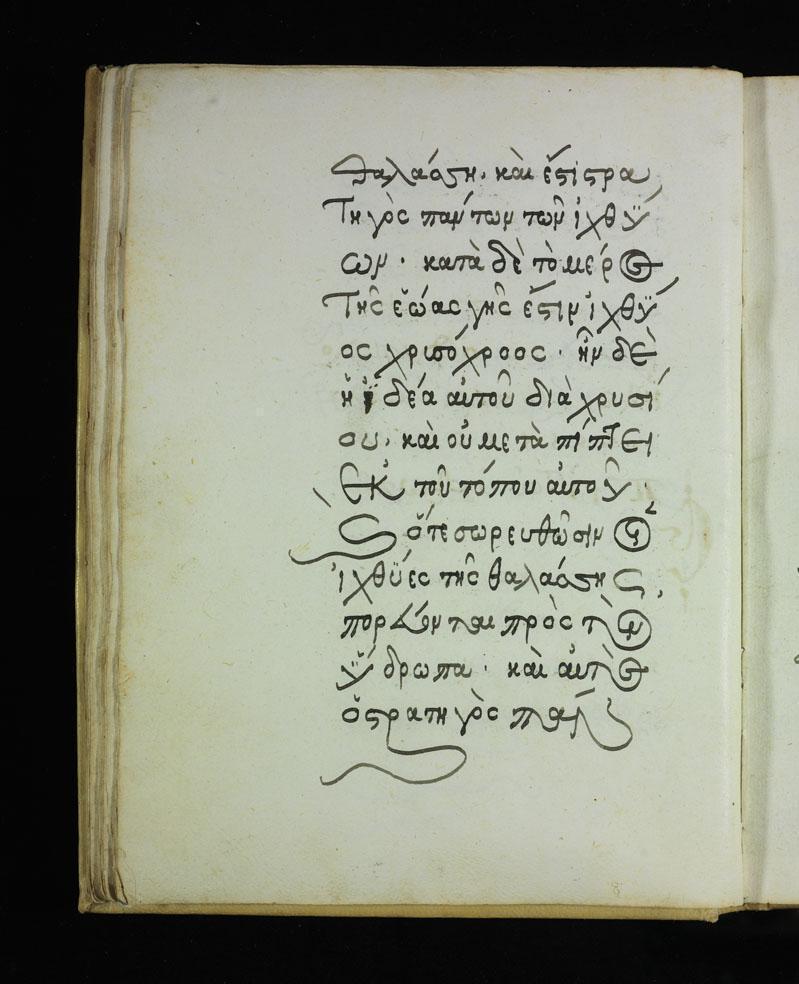 θαλάσση· καὶ ἔστι στρα
τηγὸς πάντων τῶν ἰχθύ
ων· κατὰ δὲ τὸ μέρος
τῆς ἑώας γῆς ἔστιν ἰχθύ
ος χρισόχροος· ἦν δὲ
ἡ ϊδέα αὐτοῦ διὰ χρυσί
ου· καὶ οὐ μεταπίπτει
ἐκ τοῦ τόπου αὐτοῦ·
ὅτε σωρευθῶσιν οἱ
ἰχθύες τῆς θαλάσσης,
πορεύονται πρὸς τὸν
ὕδρωπα· καὶ αὐτὸς
ὁ στρατηγὸς